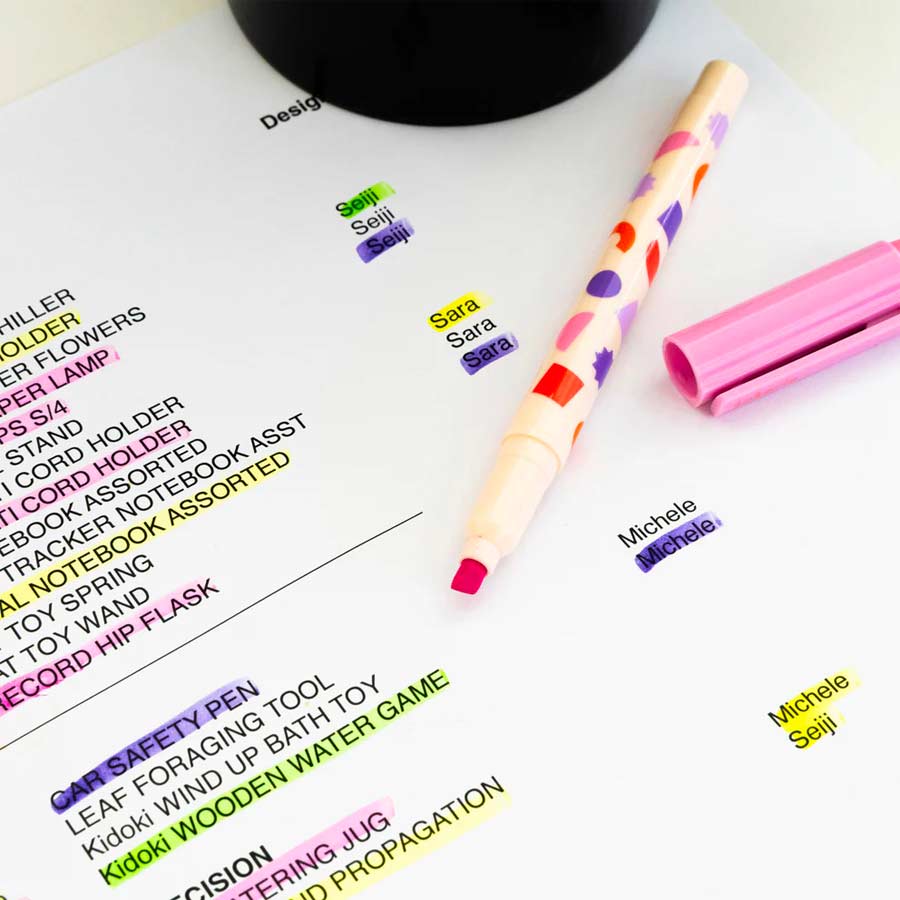 Design
Seiji
Seiji
Seiji
Sara
Sara
Sara
Michele
Michele
Michele
Seiji
HILLER
OLDER
ER FLOWERS
PER LAMP
PS S/4
STAND
TI CORD HOLDER
TI CORD HOLDER
EBOOK ASSORTED
TRACKER NOTEBOOK ASST
AL NOTEBOOK ASSORTED
TOY SPRING
AT TOY WAND
RECORD HIP FLASK
CAR SAFETY PEN
LEAF FORAGING TOOL
Kidoki WIND UP BATH TOY
Kidoki WOODEN WATER GAME
ECISION
ATERING JUG
ND PROPAGATION